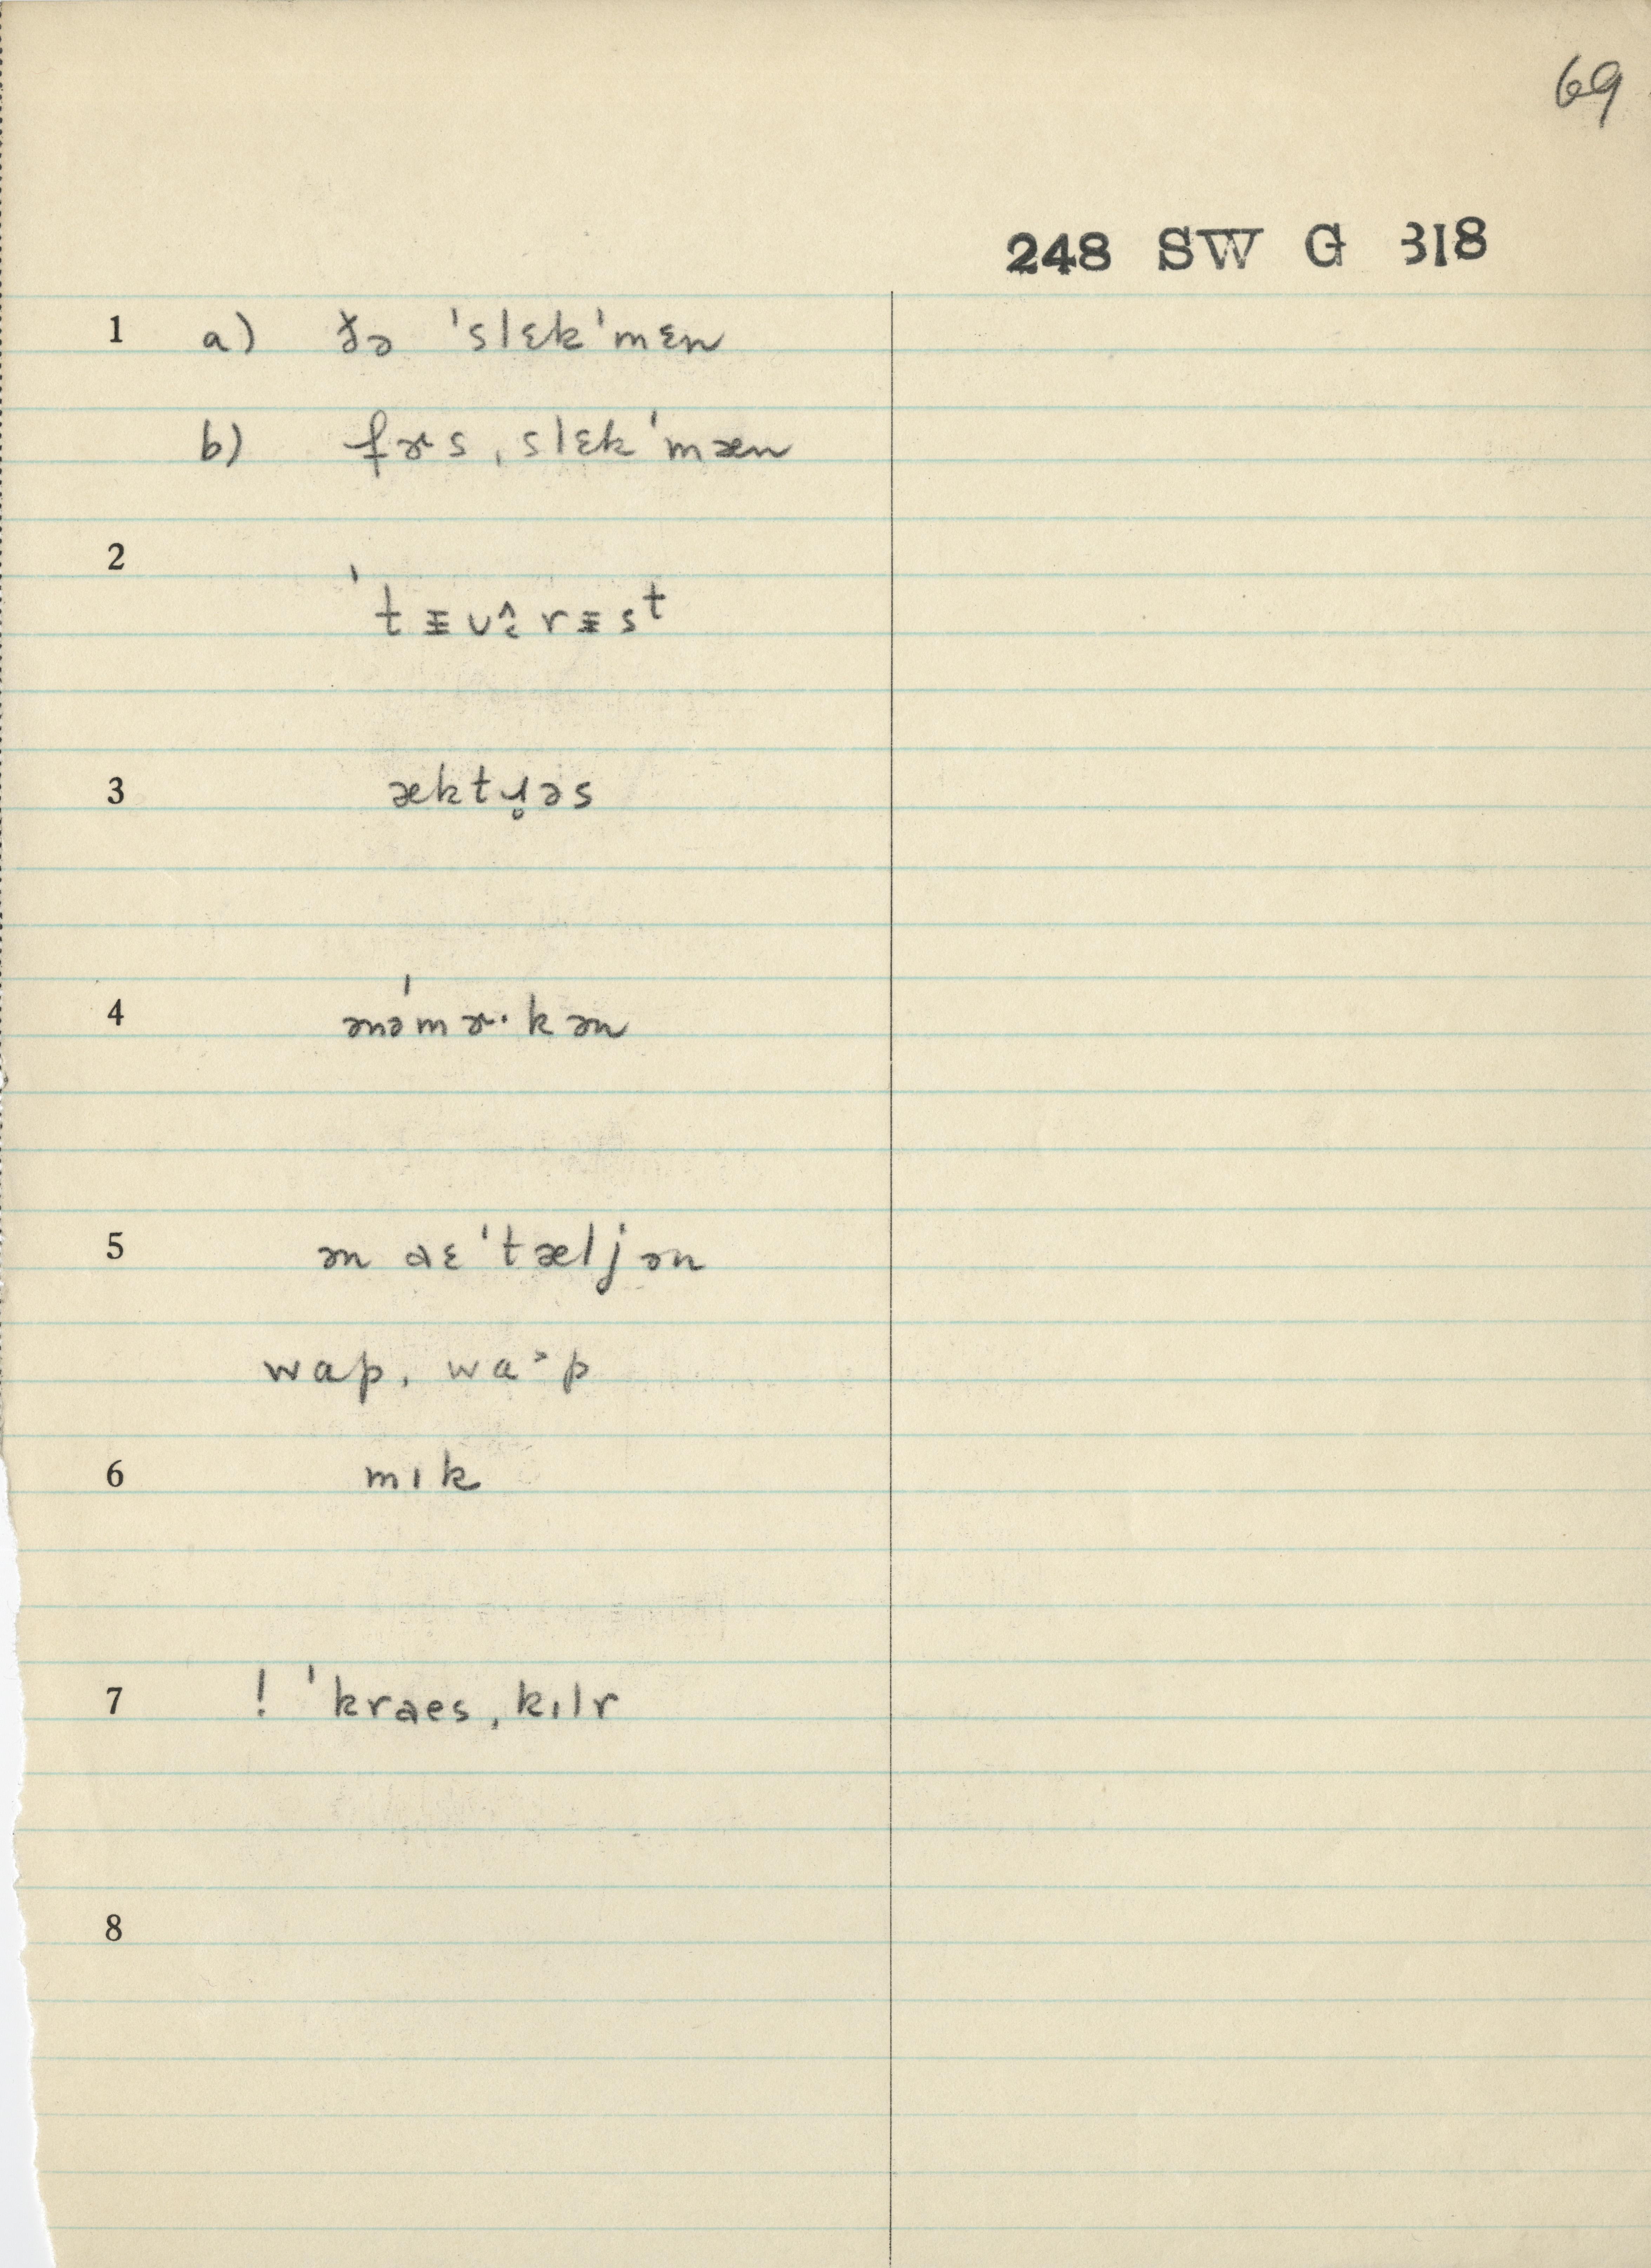 69
248 SW G 318
1 a) ðə ˈslɛkˈmɛn
b) fɚs ˌslɛkˈmæn
2
ˈtɪvərɪsᵗ
3 æktɹ̥əs
4 ənəˈmɚ·kən
5 ən aɛˈtæljən
wap, wa˃p
6 mɪk
7 ! ˈkraesˌkɪlr
8